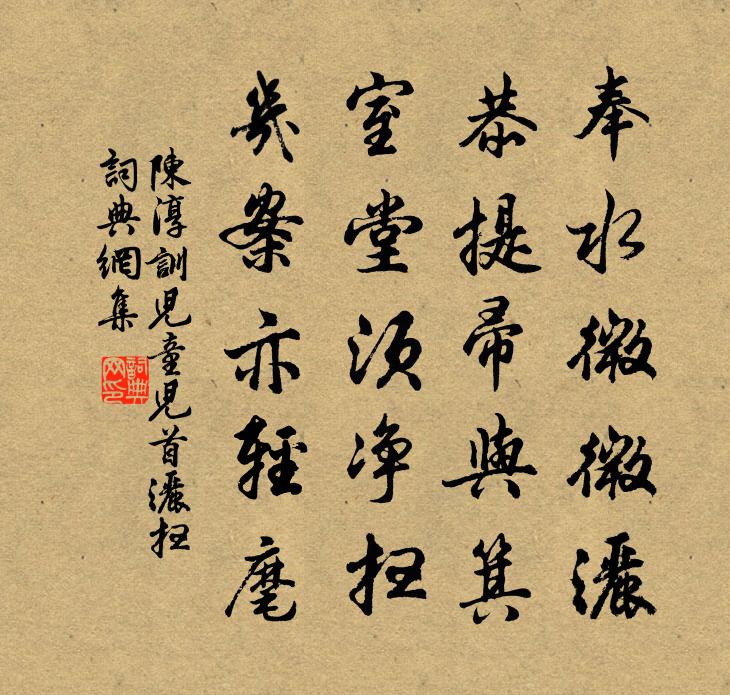 奉水微微灑
恭提帚與箕
室堂須净扫
幾案亦輕麾
陳淳訓兒童兒首灑扫
詞典網集
詞典
网印